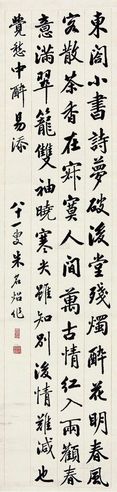 東閣小書詩夢破後堂殘燭醉花明春風
客散茶香在寂寞人間萬古情紅入兩顴春
意滿翠籠雙袖曉寒夫雖知別後情難減也
覺愁中醉易添
八十一叟朱石